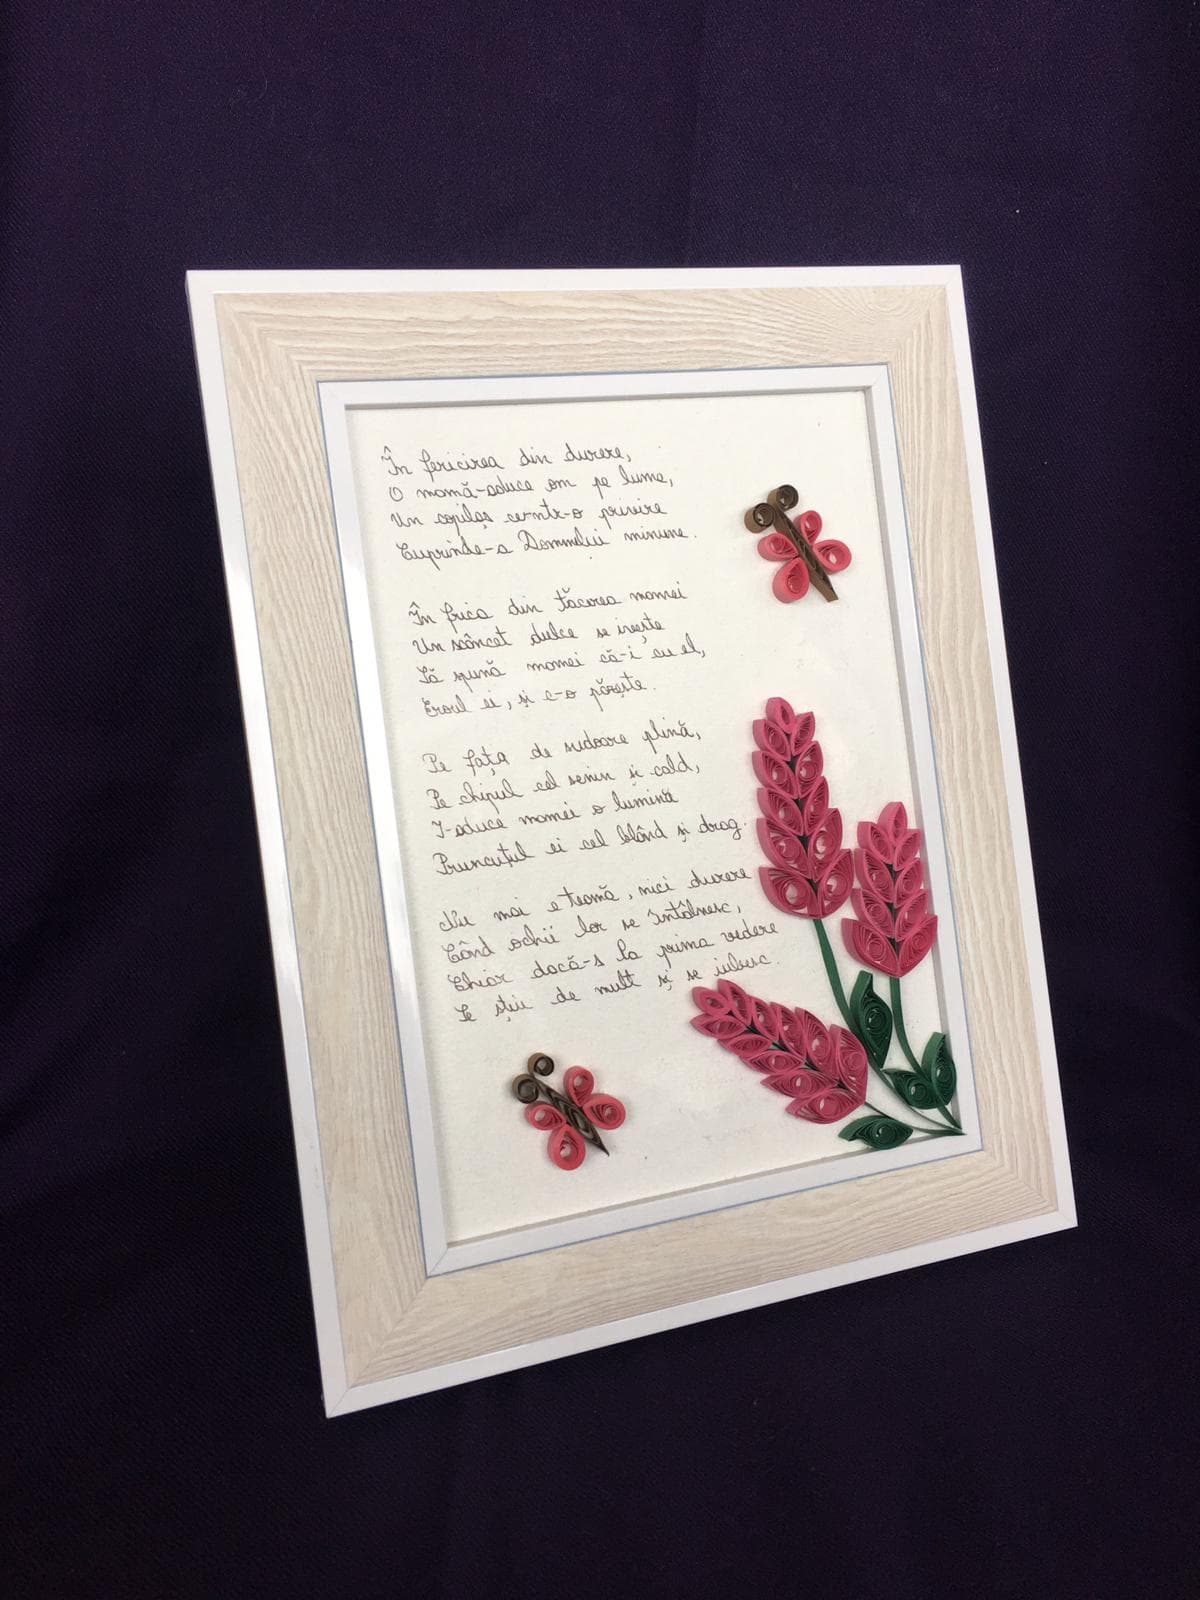 În fericirea din durere,
O mamă-aduce om pe lume,
Un copilaș ce-ntr-o privire
Cuprinde-a Domnului minune.
În frica din tăcerea mamei
Un scâncet dulce se ivește
Să spună mamei că-i cu el,
Eroul ei, și c-o păzește.
Pe fața de sudoare plină,
Pe chipul cel senin și cald,
I-aduce mamei o lumină
Pruncuțul ei cel blând și drag.
Nu mai e teamă, nici durere
Când ochii lor se întâlnesc,
Chiar dacă-s la prima vedere
Se știu de mult și se iubesc.